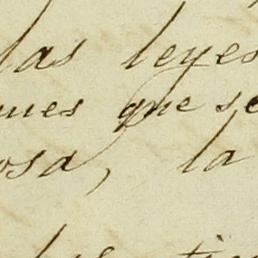 las leyes
ues que se
osa, la